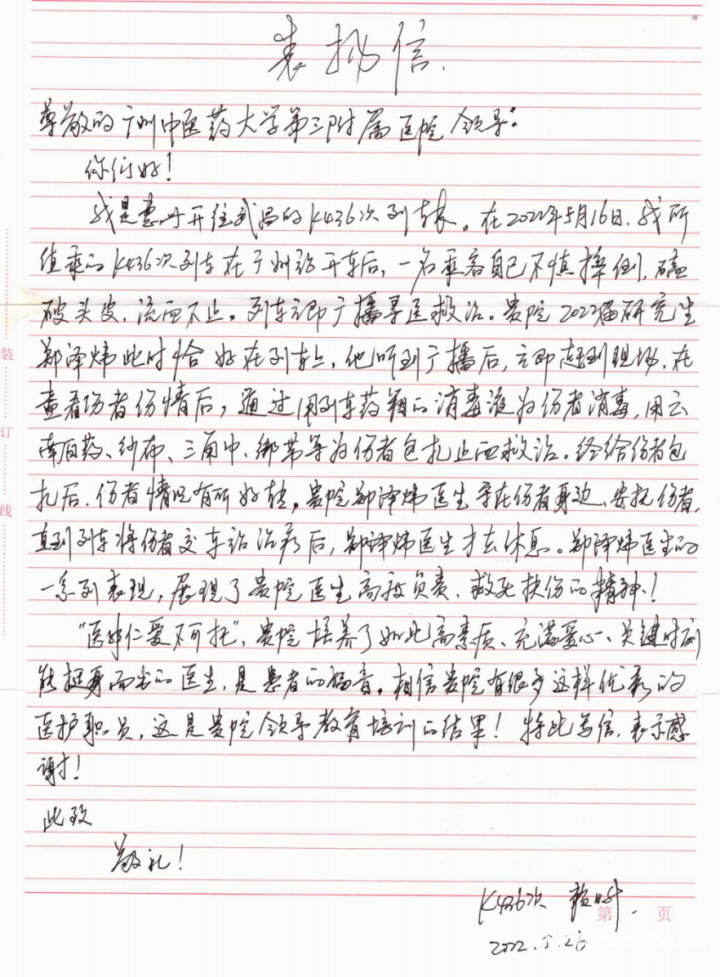 表扬信.
尊敬的广州中医药大学第三附属医院领导:
你们好!
我是惠州开往武昌的K436次列车长。在2022年5月16日,我所
值乘的K436次列车在广州站开车后,一名乘客自己不慎摔倒,磕
破头皮,流血不止。列车立即广播寻医救治。贵院2022届研究生
郑泽炜此时恰好在列车上,他听到广播后,立即赶到现场,在
查看伤者伤情后,通过用列车药箱的消毒液为伤者消毒,用云
南白药、纱布、三角巾、绑带等为伤者包扎止血救治。终给伤者包
扎后,伤者情况有所好转。贵院郑泽炜医生守在伤者身边、安抚伤者,
直到列车将伤者交车站治疗后,郑泽炜医生才去休息。郑泽炜医生的
一系列表现,展现了贵院医生高被负责、救死扶伤的精神!
“医非仁爱不可托”,贵院培养了如此高素质、充满爱心、关键时刻
能挺身而出的医生,是患者的福音。相信贵院有很多这样优秀的
医护职员,这是贵院领导教育培训的结果!特此写信,表示感
谢!
此致
敬礼!
K436次
2022.5.26
第 页
装
订
线